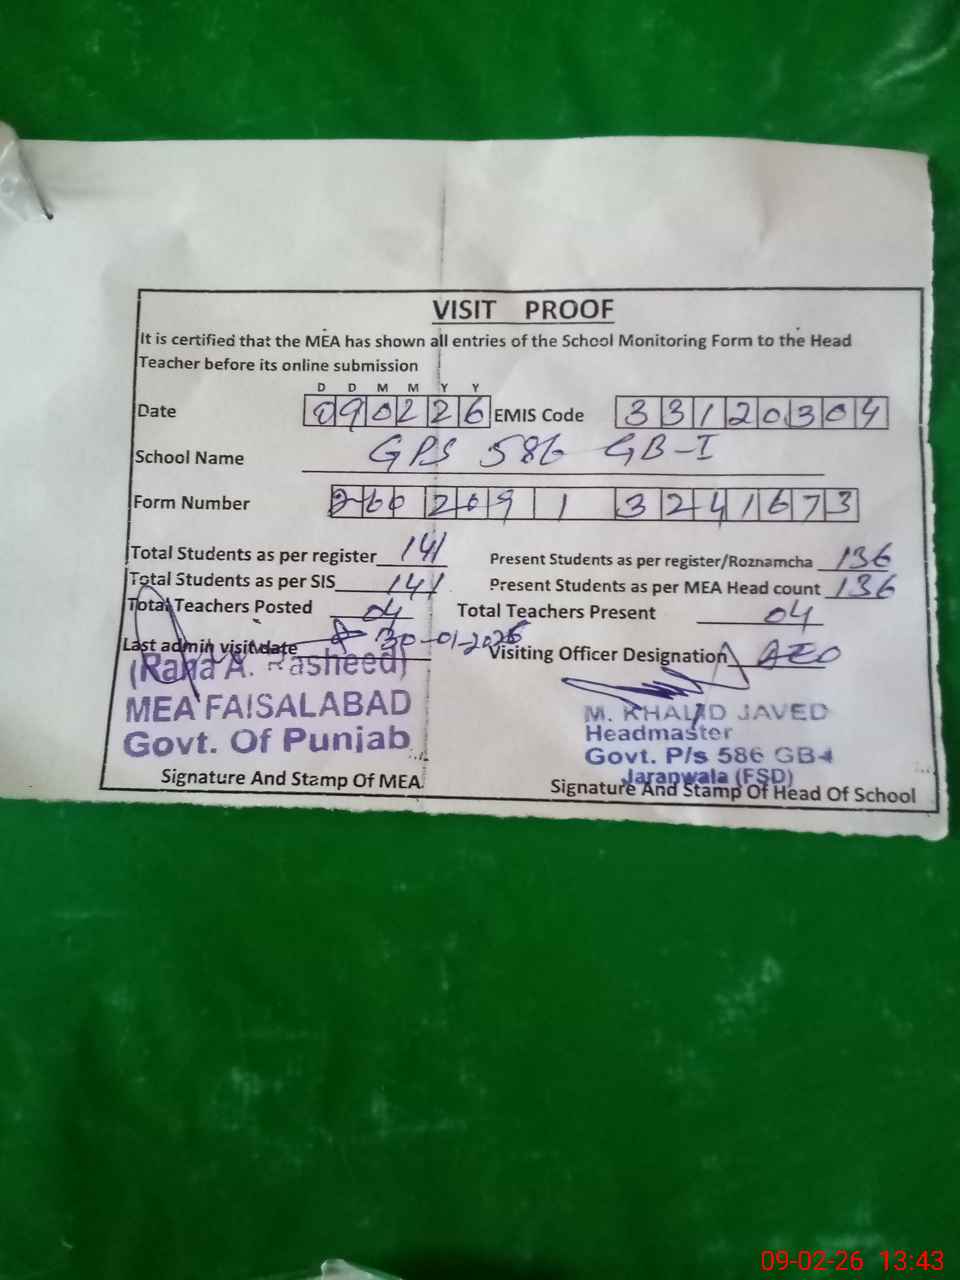 VISIT PROOF
It is certified that the MEA has shown all entries of the School Monitoring Form to the Head
Teacher before its online submission
D D M M Y Y
Date 090226 EMIS Code 33120304
School Name GPS 586 GB-I
Form Number 260 209 1 3241673
Total Students as per register 141 Present Students as per register/Roznamcha 136
Total Students as per SIS 141 Present Students as per MEA Head count 136
Total Teachers Posted 04 Total Teachers Present 04
Last admin visit date 30-01-2026 Visiting Officer Designation AEO
(Rana A. Rasheed)
MEA FAISALABAD
Govt. Of Punjab
Signature And Stamp Of MEA
M. KHALID JAVED
Headmaster
Govt. P/s 586 GB-I
Jaranwala (FSD)
Signature And Stamp Of Head Of School
09-02-26 13:43